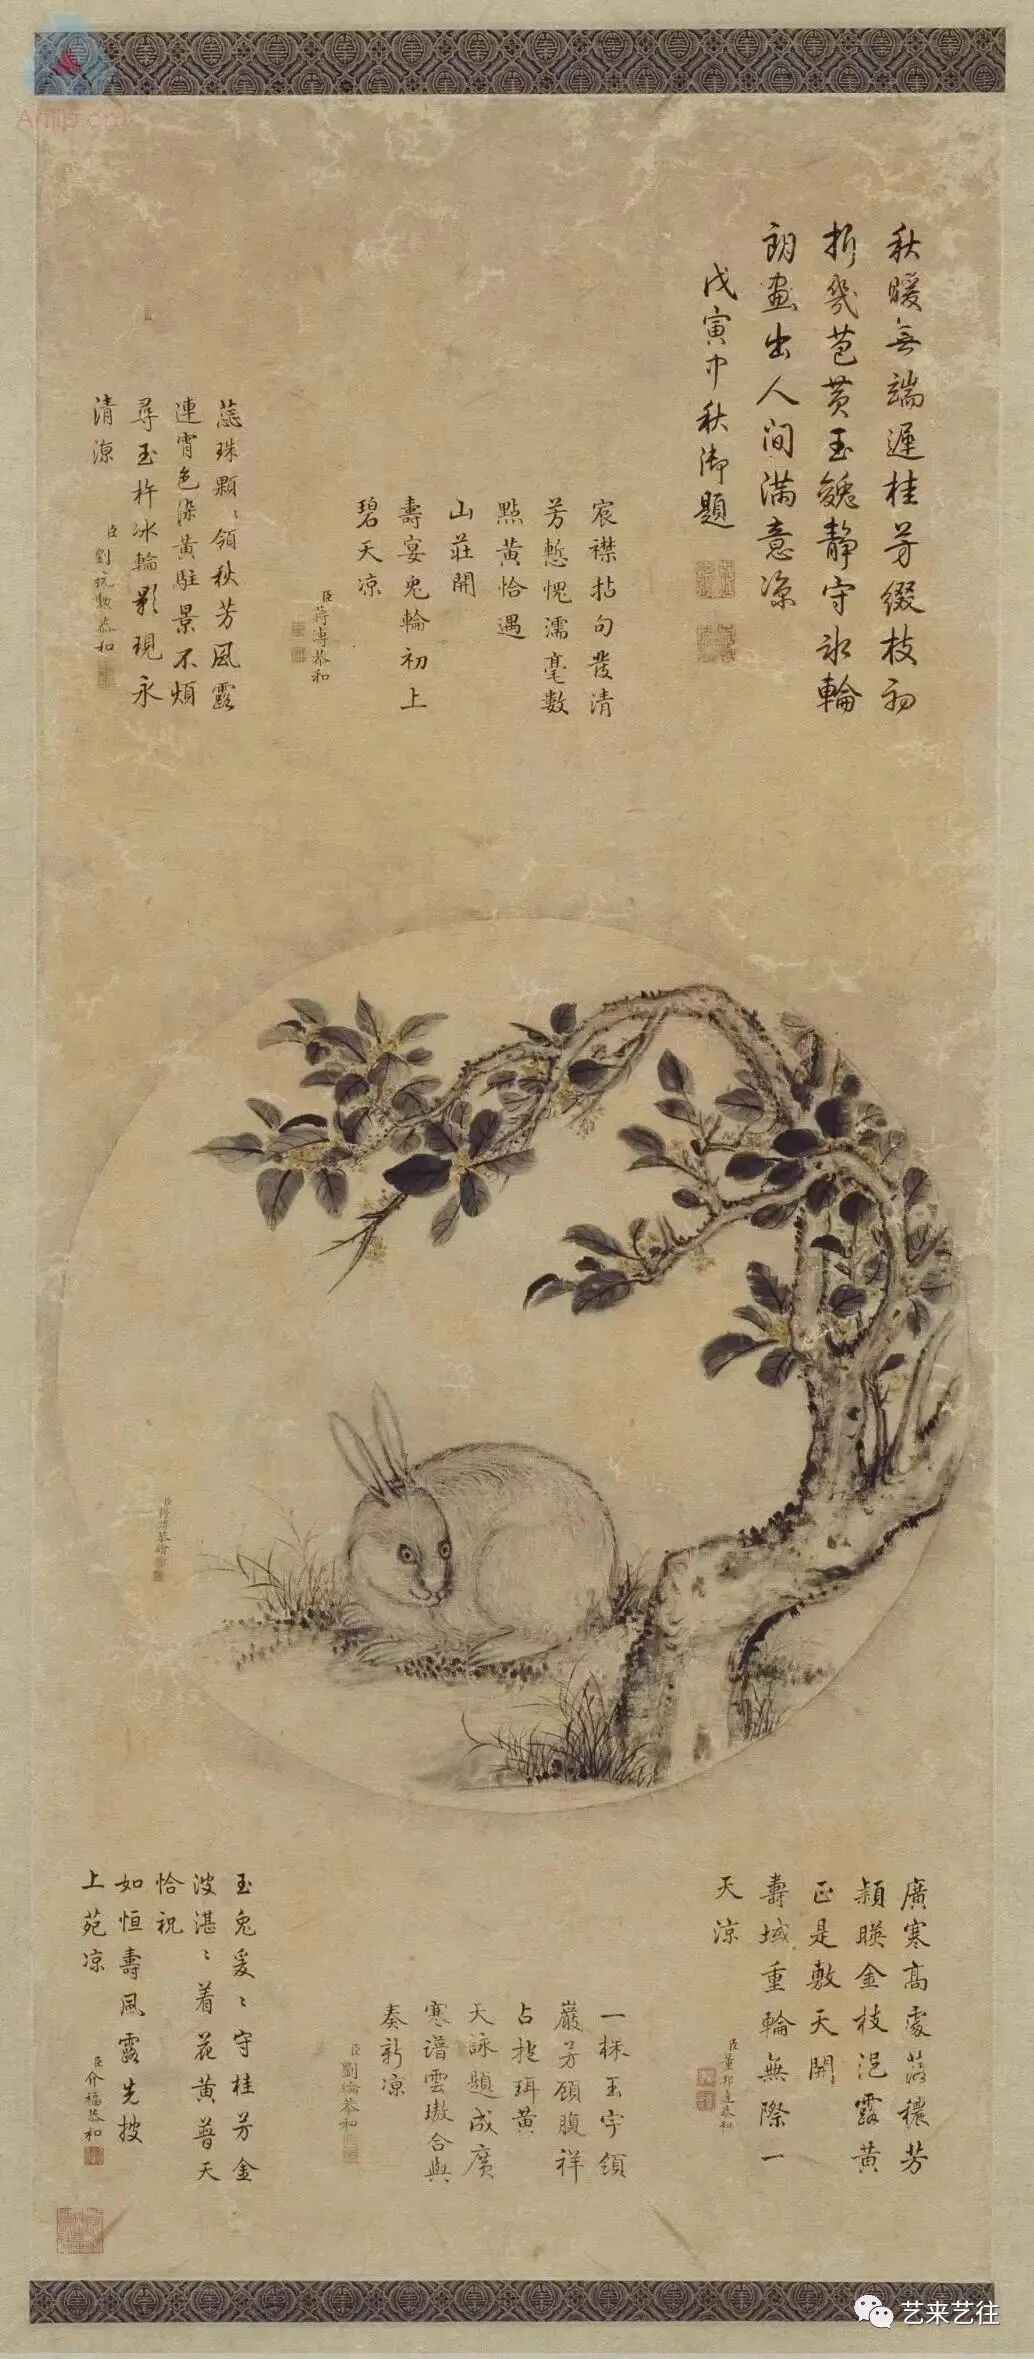 秋暖無端遲桂芳綴枝初
折幾苞黄玉㕙靜守冰輪
朗畫出人间满意凉
戊寅中秋御題
宸襟拈句發清
芳慙愧濡毫数
點黄恰遇
山莊開
壽宴兔輪初上
碧天凉
臣蒋溥恭和
蕊珠顆〻領秋芳風露
連宵色染黄駐景不煩
尋玉杵冰輪影現永
清凉
臣劉統勲恭和
臣蒋溥恭繪
廣寒高處蕩穠芳
穎暎金枝浥露黄
正是敷天開
壽域重輪無際一
天凉
臣董邦達恭和
一株玉宇領
巖芳顾腹祥
占挖珥黄
天詠題成廣
寒谱雲璈合與
奏新凉
臣劉綸恭和
玉兔爰〻守桂芳金
波湛〻着花黄普天
恰祝
如恒壽風露先披
上苑凉
臣介福恭和
艺来艺往